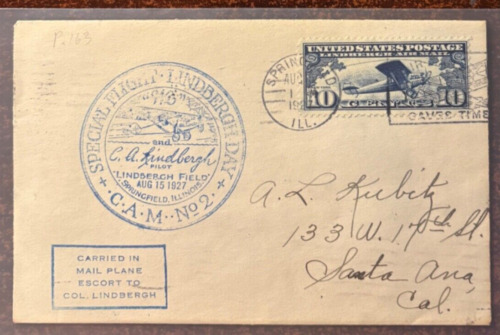 P. 163
UNITED STATES POSTAGE
LINDBERGH AIR MAIL
10 CENTS 10
SPRINGFIELD
AUG
1
ILL.
AIR
SAVES TIME
SPECIAL FLIGHT · LINDBERGH DAY
and
C. A. Lindbergh
PILOT
"LINDBERGH FIELD"
AUG 15 1927
SPRINGFIELD, ILLINOIS
· C·A·M·· No 2 ·
A. L. Kubitz
133 W. 17th St.
Santa Ana,
Cal.
CARRIED IN
MAIL PLANE
ESCORT TO
COL. LINDBERGH